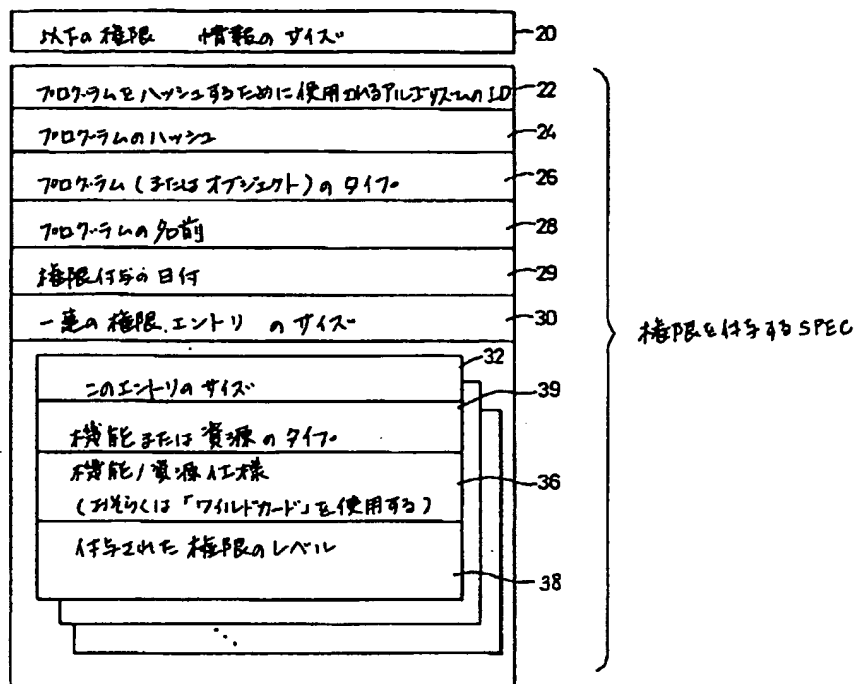 以下の権限 情報のサイズ 20
プログラムをハッシュするために使用されるアルゴリズムのID 22
プログラムのハッシュ 24
プログラム(またはオブジェクト)のタイプ 26
プログラムの名前 28
権限付与の日付 29
一連の権限.エントリ のサイズ 30
権限を付与するSPEC
32
このエントリのサイズ
39
機能または資源のタイプ
機能/資源仕様 36
(おそらくは「ワイルドカード」を使用する)
付与された権限のレベル
38